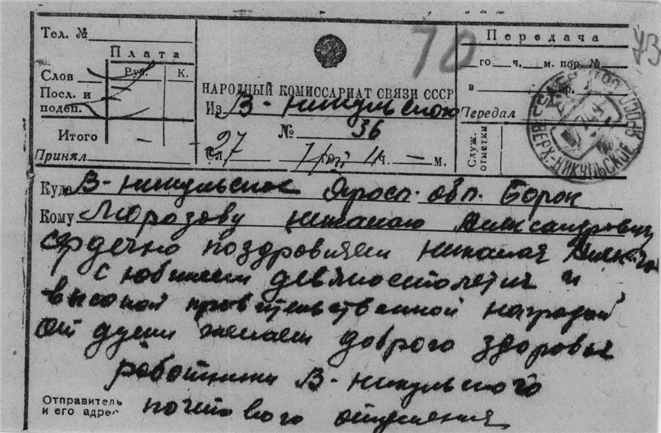 70
73
Тел. №
Плата
Руб. К.
Слов
Посл. и
подеп.
Итого
Принял
НАРОДНЫЙ КОМИССАРИАТ СВЯЗИ СССР
Из В-никульского
№ 36
27
Сл. го ч. 4 м.
Передача
го ч. м. пор. №
в пр.
Передал
Служ.
отметки
ВЕРХ-НИКУЛЬСКОЕ
Куда В-никульское Яросл. обл. Борок
Кому Морозову николаю Александровичу
сердечно поздравляем николая Алекс
с юбилеем девяностолетия и
высокой правительственной наградой
от души желаем доброго здоровья
работники В-никульского
Отправитель
и его адрес
почтового отделения